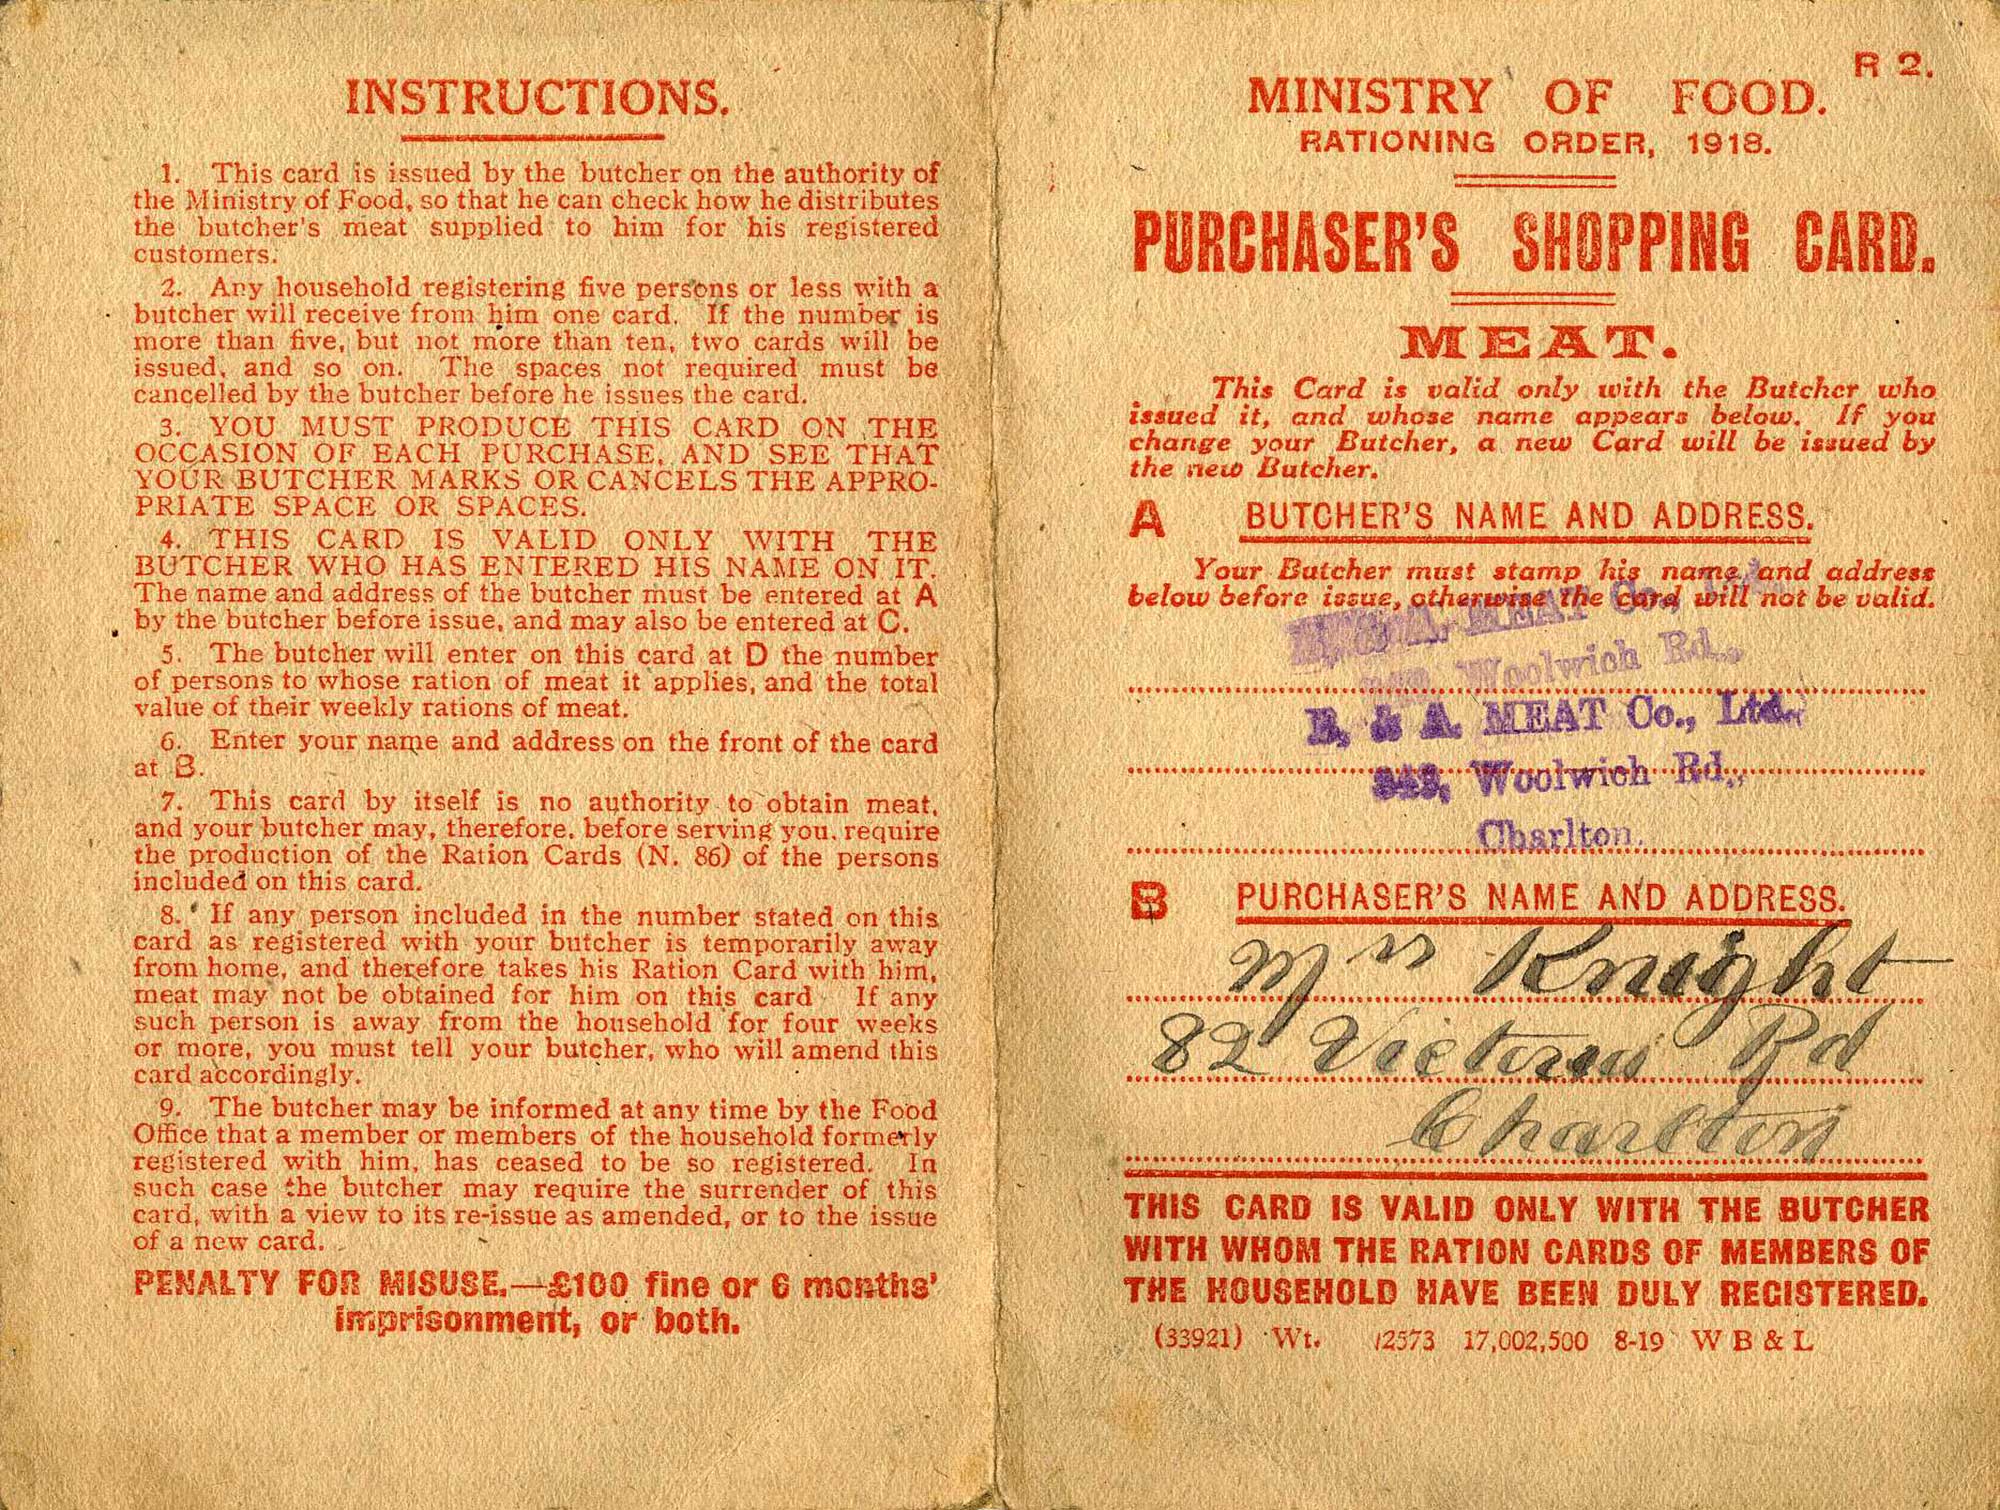 INSTRUCTIONS.
1. This card is issued by the butcher on the authority of
the Ministry of Food, so that he can check how he distributes
the butcher's meat supplied to him for his registered
customers.
2. Any household registering five persons or less with a
butcher will receive from him one card. If the number is
more than five, but not more than ten, two cards will be
issued, and so on. The spaces not required must be
cancelled by the butcher before he issues the card.
3. YOU MUST PRODUCE THIS CARD ON THE
OCCASION OF EACH PURCHASE, AND SEE THAT
YOUR BUTCHER MARKS OR CANCELS THE APPRO-
PRIATE SPACE OR SPACES.
4. THIS CARD IS VALID ONLY WITH THE
BUTCHER WHO HAS ENTERED HIS NAME ON IT.
The name and address of the butcher must be entered at A
by the butcher before issue, and may also be entered at C.
5. The butcher will enter on this card at D the number
of persons to whose ration of meat it applies, and the total
value of their weekly rations of meat.
6. Enter your name and address on the front of the card
at B.
7. This card by itself is no authority to obtain meat,
and your butcher may, therefore, before serving you, require
the production of the Ration Cards (N. 86) of the persons
included on this card.
8. If any person included in the number stated on this
card as registered with your butcher is temporarily away
from home, and therefore takes his Ration Card with him,
meat may not be obtained for him on this card If any
such person is away from the household for four weeks
or more, you must tell your butcher, who will amend this
card accordingly.
9. The butcher may be informed at any time by the Food
Office that a member or members of the household formerly
registered with him, has ceased to be so registered. In
such case the butcher may require the surrender of this
card, with a view to its re-issue as amended, or to the issue
of a new card.
PENALTY FOR MISUSE.—£100 fine or 6 months'
imprisonment, or both.
R 2.
MINISTRY OF FOOD.
RATIONING ORDER, 1918.
PURCHASER'S SHOPPING CARD.
MEAT.
This Card is valid only with the Butcher who
issued it, and whose name appears below. If you
change your Butcher, a new Card will be issued by
the new Butcher.
A BUTCHER'S NAME AND ADDRESS.
Your Butcher must stamp his name and address
below before issue, otherwise the card will not be valid.
& A. MEAT Co.,
Woolwich Rd.,
& A. MEAT Co., Ltd.,
Woolwich Rd.,
Charlton.
B PURCHASER'S NAME AND ADDRESS.
Mrs Knight
82 Victoria Rd
Charlton
THIS CARD IS VALID ONLY WITH THE BUTCHER
WITH WHOM THE RATION CARDS OF MEMBERS OF
THE HOUSEHOLD HAVE BEEN DULY REGISTERED.
(33921) Wt. 12573 17,002,500 8-19 W B & L